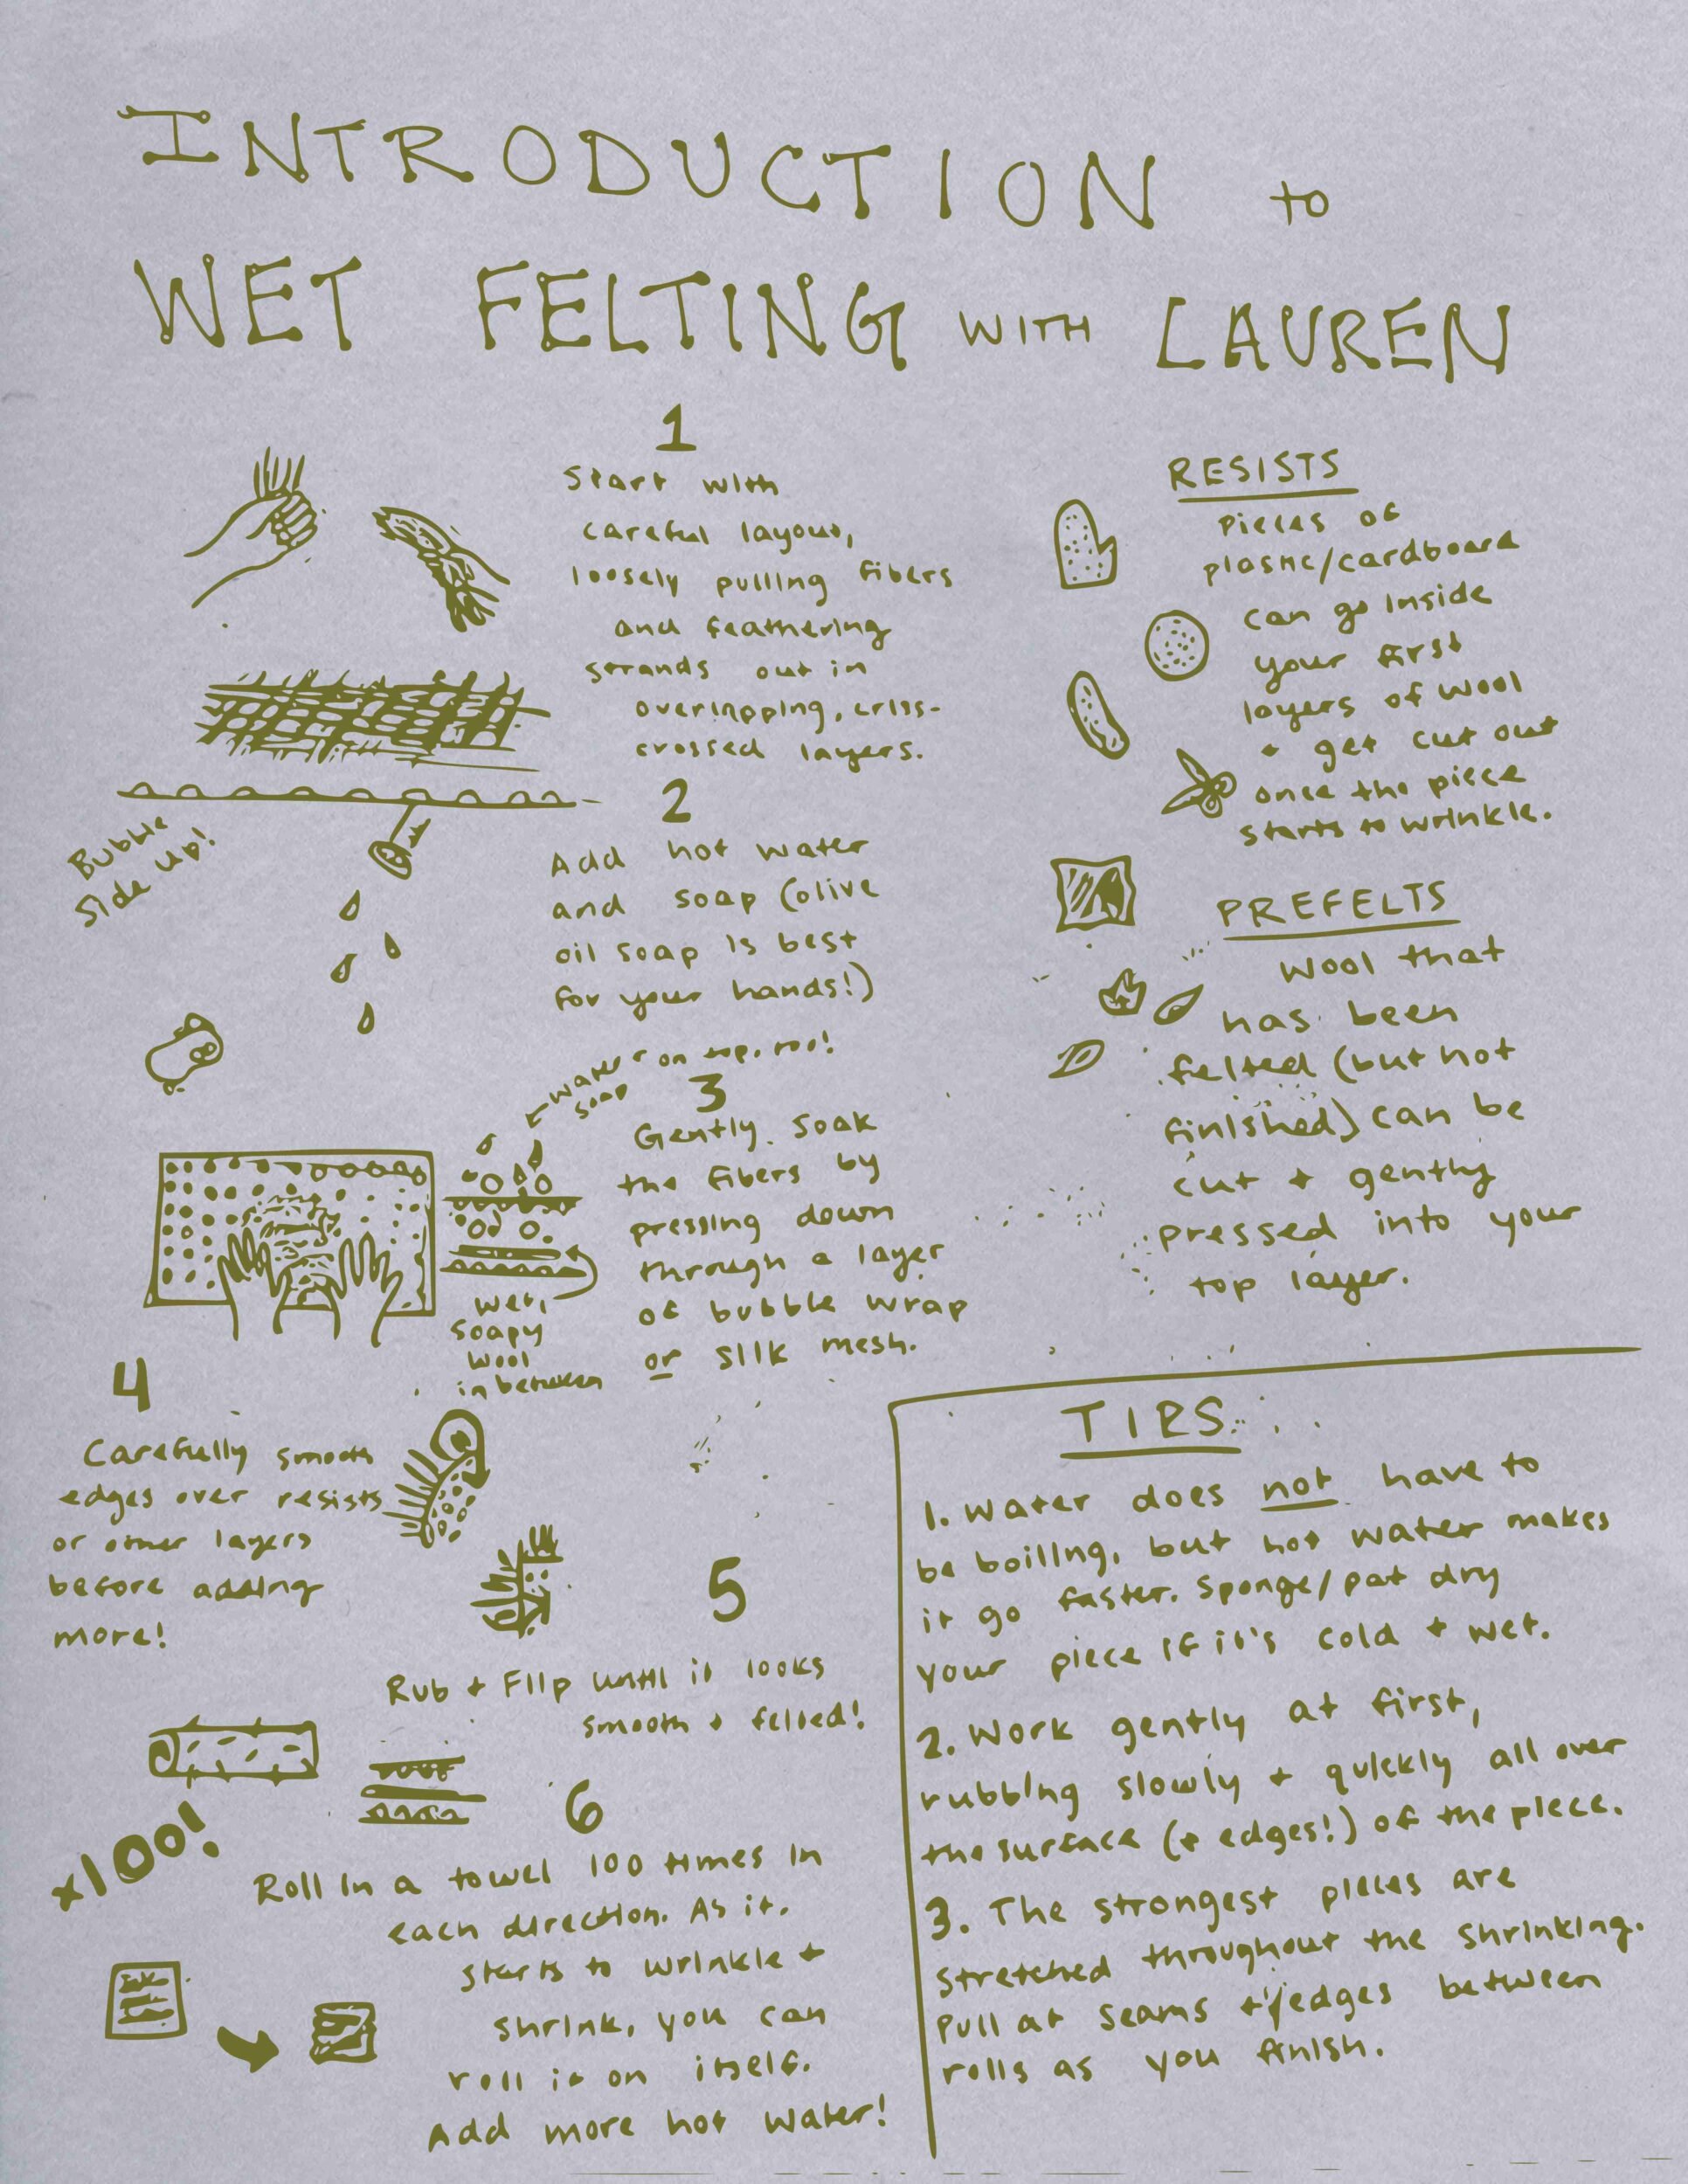 INTRODUCTION to
WET FELTING WITH LAUREN
1
Start with
careful layout,
loosely pulling fibers
and feathering
strands out in
overlapping, criss-
crossed layers.
Bubble
side up!
2
Add hot water
and soap (olive
oil soap is best
for your hands!)
water + on top, too!
soap
3
Gently soak
the fibers by
pressing down
through a layer
of bubble wrap
or silk mesh.
wet,
soapy
wool
in between
4
Carefully smooth
edges over resists
or other layers
before adding
more!
5
Rub + Flip until it looks
smooth + felted!
6
x100!
Roll in a towel 100 times in
each direction. As it
starts to wrinkle +
shrink, you can
roll it on itself.
Add more hot water!
RESISTS
pieces of
plastic/cardboard
can go inside
your first
layers of wool
+ get cut out
once the piece
starts to wrinkle.
PREFELTS
Wool that
has been
felted (but not
finished) can be
cut + gently
pressed into your
top layer.
TIPS
1. Water does not have to
be boiling, but hot water makes
it go faster. Sponge/pat dry
your piece if it's cold + wet.
2. Work gently at first,
rubbing slowly + quickly all over
the surface (+ edges!) of the piece.
3. The strongest pieces are
stretched throughout the shrinking.
Pull at seams + edges between
rolls as you finish.